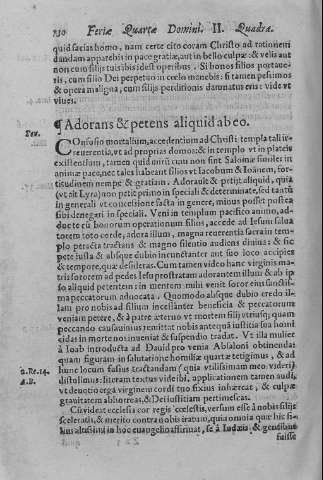 730 Feriæ Quartæ Domini. II. Quadra.
quid facias homo, nam certe cito coram Christo ad rationem
dandam apparebis in pace gratiæ, aut in bello culpæ: & velis aut
non cum filijs tuis ibis idest operibus. Si bonos filios portaue-
ris, cum filio Dei perpetuo in cœlo manebis: si tamen pessimos
& opera maligna, cum filijs perditionis damnatus eris: vide vt
viuas.
¶ Adorans & petens aliquid ab eo.
Confusio mortalium, accedentium ad Christi templa tali ir-
reuerentia, vt ad proprias domos: & in templo vt in plateis
existentium, tamen quid mirũ cum non sint Salomæ similes in
animæ pace, nec tales habeant filios vt Iacobum & Ioãnem, for-
titudinem nempe & gratiam. Adorauit & petijt aliquid, quia
(vt ait Lyra) non petit primo in speciali & determinate, sed tantũ
in generali vt concessione facta in genere, minus posset postea
sibi denegari in speciali. Veni in templum pacifico animo, ad-
ducte cũ bonorum operationum filios, accede ad Iesum salua
torem toto corde, adora illum, magna reuerentia sacra in tem-
plo peracta tractans & magno silentio audiens diuina: & sic
pete iusta & absque dubio incunctanter aut suo loco accipies
& tempore, quæ desideras. Cum tamen video hanc virginis ma-
tris sororem ad pedes Iesu prostratam adorantem illum & ab ip
so aliquid petentem: in mentem mihi venit soror eius sanctissi-
ma peccatorum aduocata. Quomodo absque dubio credo il-
lam pro nobis ad filium incessanter beneficia & peccatorum
veniam petere, & à patre æterno vt mortem filij vtriusq; quam
peccando causauimus remittat nobis antequã iustitiæ sua homi
cidas in morte nos inueniat & suspendio tradat. Vt illa mulier
à Ioab introducta ad Dauid pro venia Absaloni obtinendat
quam figuram in salutatione homiliæ quartæ tetigimus, & ad
hunc locum fusius tractandam (quia vtilissimam meo videri)
distulimus: litteram textus videbis, applicationem tamen audi,
vt deuotio ergà virginem cordi tuo fixius inhæreat, & culpæ
grauitatem abhorreas, & Dei iustitiam pertimescas.
Cũ videat ecclesia cor regis cœlestis, versum esse à nobis filijs
sceleratis, & merito contra nobis iratum, quia omoia quæ hic fi-
lius altissimi in hoc euangelio affirmat, se à Iudæis & gentibus
fuisse
Pet.
2. Re. 14.
A. B.